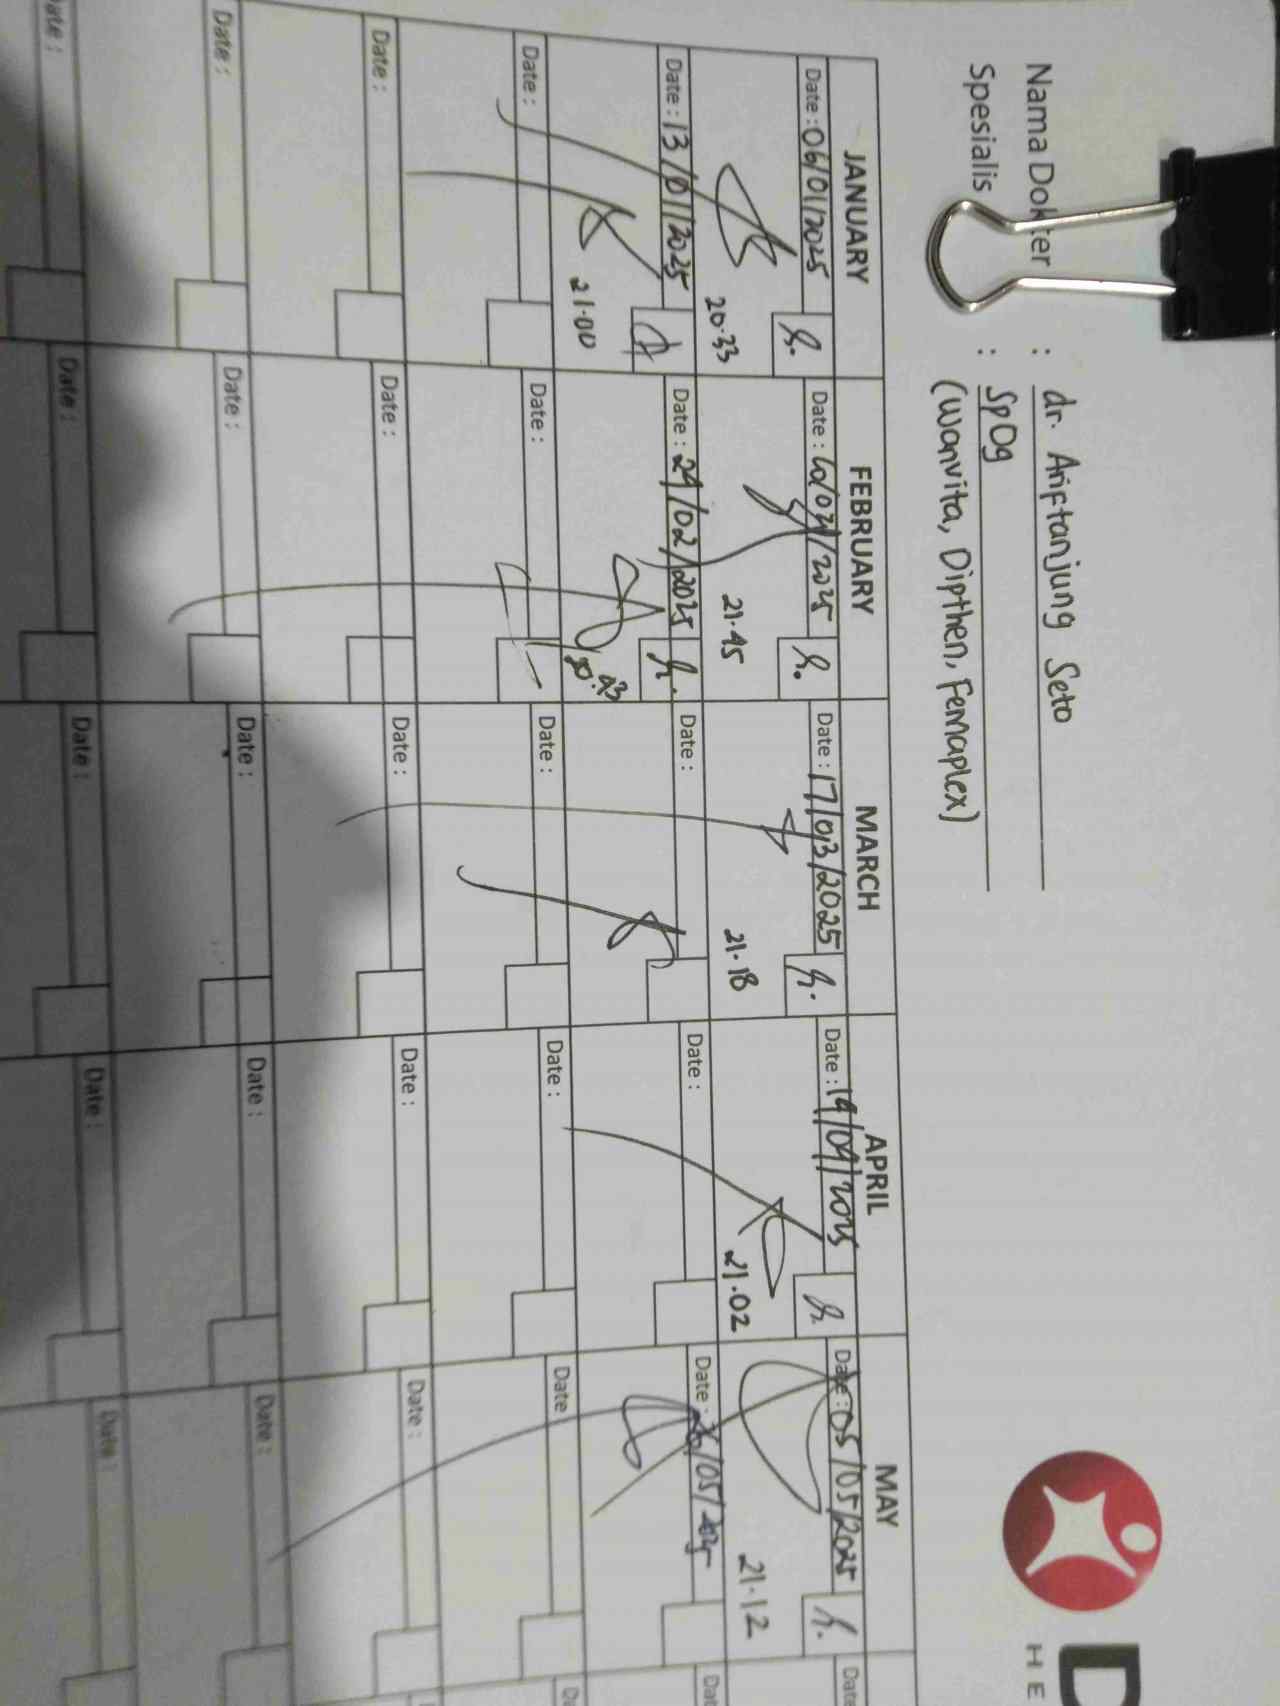 Nama Dokter : dr. Ariftanjung Seto
Spesialis : SpOg
(Wanvita, Dipthen, Femaplex)
D
HE
JANUARY FEBRUARY MARCH APRIL MAY
Date : 06/01/2025 Date : Date : 17/03/2025 Date : Date : 05/05/2025 Date
20.33 21.45 21.18 21.02 21.12
Date : 13/01/2025 Date : 24/02/2025 Date : Date : Date : Dat
21.00
Date : Date : Date : Date : Date Da
Date : Date : Date : Date : Date :
Date : Date : Date : Date : Date :
ate : Date : Date : Date : Date :